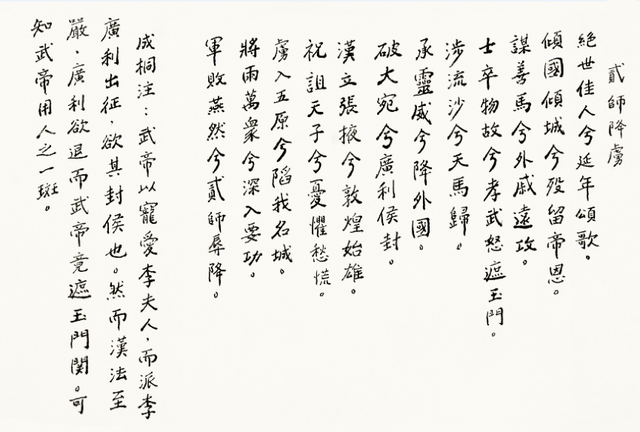 貳師降虜
絕世佳人兮延年頌歌。
傾國傾城兮歿留帝恩。
謀善馬兮外戚遠攻。
士卒物故兮孝武怒遮玉門。
涉流沙兮天馬歸。
承靈威兮降外國。
破大宛兮廣利侯封。
漢立張掖兮敦煌始雄。
祝詛天子兮憂懼愁慌。
虜入五原兮陷我名城。
將兩萬衆兮深入要功。
軍敗燕然兮貳師辱降。
成桐注：武帝以寵愛李夫人，而派李
廣利出征，欲其封侯也。然而漢法至
嚴，廣利欲退而武帝竟遮玉門関。可
知武帝用人之一斑。